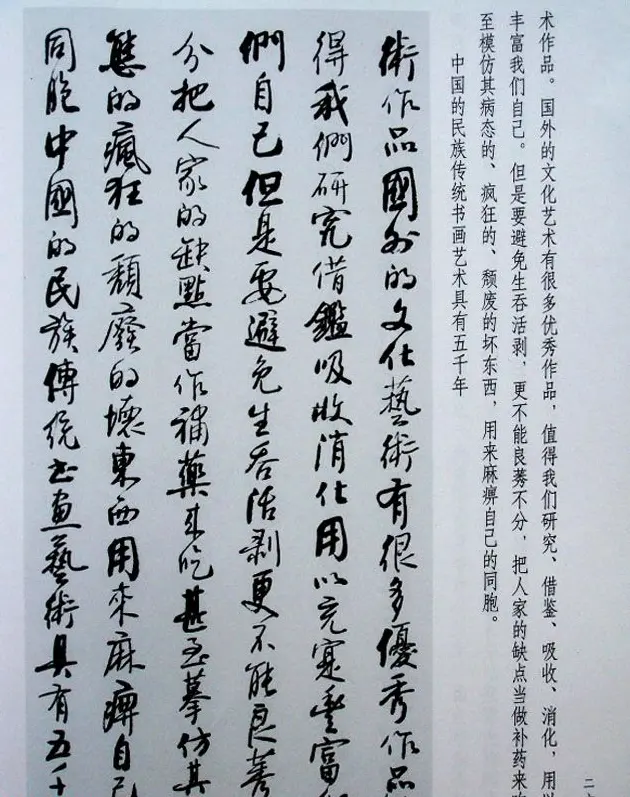 术作品。国外的文化艺术有很多优秀作品，值得我们研究、借鉴、吸收、消化，用以
丰富我们自己。但是要避免生吞活剥，更不能良莠不分，把人家的缺点当做补药来吃
至模仿其病态的、疯狂的、颓废的坏东西，用来麻痹自己的同胞。
中国的民族传统书画艺术具有五千年
術作品國外的文化藝術有很多優秀作品
得我們研究借鑑吸收消化用以充寔豐富
們自己但是要避免生吞活剥更不能良莠
分把人家的缺點當作補藥來吃甚至摹仿其
態的瘋狂的頹廢的壞東西用來麻痺自己
同胞中國的民族傳統书畫藝術具有五千
二